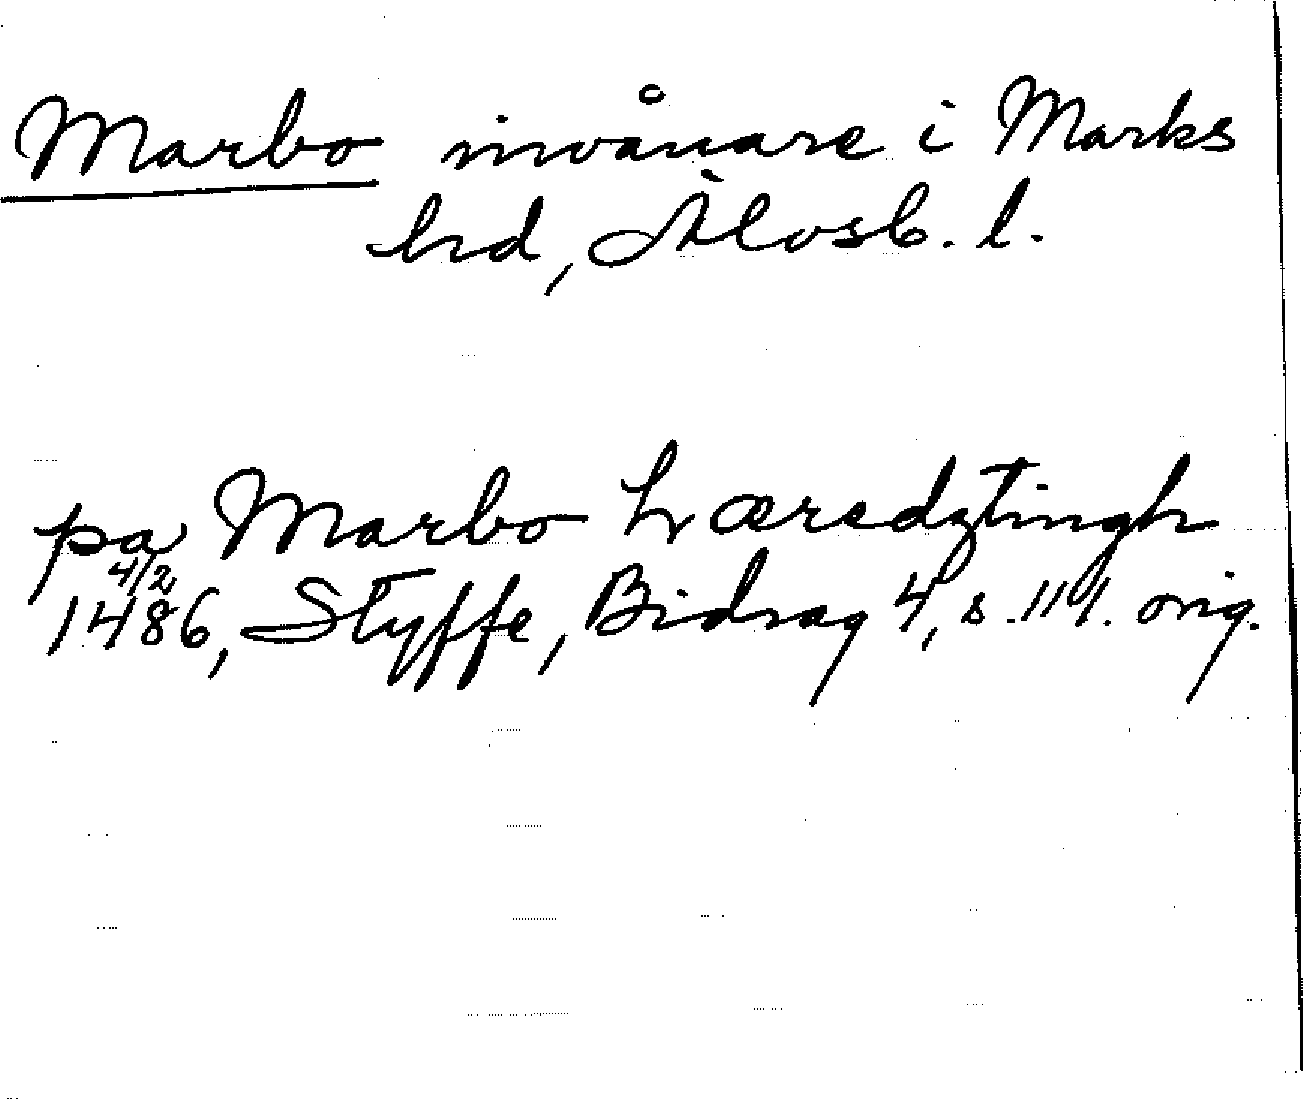 Marbo invånare i Marks
hd, Älvsb. l.
pa Marbo hæredztingh
4/2
1486, Styffe, Bidrag 4, s. 111. orig.